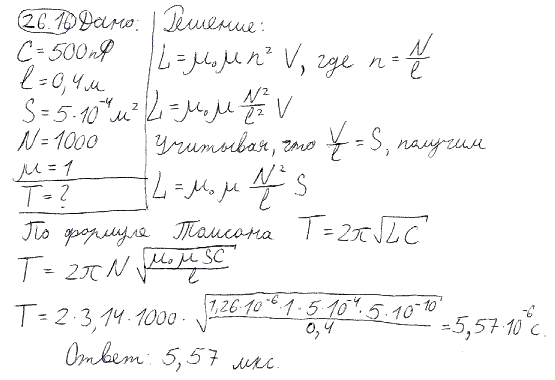 26.16 Дано: Решение:
C = 500 пФ
l = 0,4 м
S = 5·10⁻⁴ м²
N = 1000
μ = 1
T = ?
L = μ₀ μ n² V, где n = N/l
L = μ₀ μ N²/l² V
Учитывая, что V/l = S, получим
L = μ₀ μ N²/l S
По формуле Томсона T = 2π√LC
T = 2π N √(μ₀ μ SC / l)
T = 2·3,14·1000·√(1,26·10⁻⁶·1·5·10⁻⁴·5·10⁻¹⁰ / 0,4) = 5,57·10⁻⁶ с.
Ответ: 5,57 мкс.